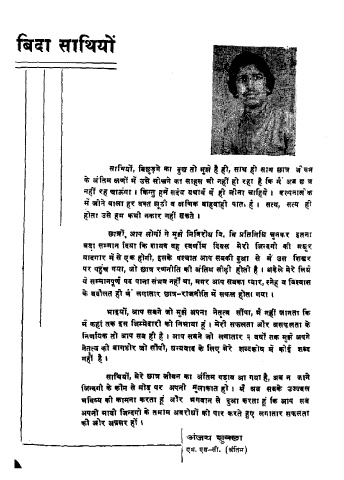 बिदा साथियों
साथियों, बिछुड़ने का दुख तो मुझे है ही, साथ ही साथ छात्र जीवन
के अंतिम क्षणों में उसे सोचने का साहस भी नहीं हो रहा है कि मैं अब छात्र
नहीं रह पाऊंगा। किन्तु हमें सदैव यथार्थ में ही जीना चाहिये। कल्पनालोक
में जीने वाला हर वक्त झूठी व क्षणिक वाहवाही पाता है। सत्य, सत्य ही
होता उसे हम कभी नकार नहीं सकते।
छात्रों, आप लोगों ने मुझे निर्विरोध वि. वि. प्रतिनिधि चुनकर इतना
बड़ा सम्मान दिया कि शायद वह स्वर्णीम दिवस मेरी जिन्दगी की मधुर
यादगार में से एक होगी, इसके पश्चात आप सबकी दुआ से मैं उस शिखर
पर पहुंच गया, जो छात्र राजनीति की अंतिम सीढ़ी होती है। अकेले मेरे लिये
ये सम्मानपूर्ण पद पाना संभव नहीं था, मगर आप सबका प्यार, स्नेह व विश्वास
के बदौलत ही मैं लगातार छात्र-राजनीति में सफल होता गया।
भाइयों, आप सबने जो मुझे अपना नेतृत्व सौंपा, मैं नहीं जानता कि
मैं कहां तक इस जिम्मेदारी को निभाया हूं। मेरी सफलता और असफलता के
निर्णायक तो आप सब ही है। आप सबने जो लगातार २ वर्षों तक मुझे अपने
नेतृत्व की बागडोर जो सौंपी, धन्यवाद के लिए मेरे शब्दकोष में कोई शब्द
नहीं है।
साथियों, मेरे छात्र जीवन का अंतिम पड़ाव आ गया है, अब न जाने
जिन्दगी के कौन से मोड़ पर अपनी मुलाकात हो। मैं अब सबके उज्ज्वल
भविष्य की कामना करता हूं और भगवान से दुआ करता हूं कि आप सब
अपनी भावी जिन्दगी के तमाम अवरोधों को पार करते हुए लगातार सफलता
की ओर अग्रसर हों।
अंजय शुक्ला
एम. एस-सी. (अंतिम)